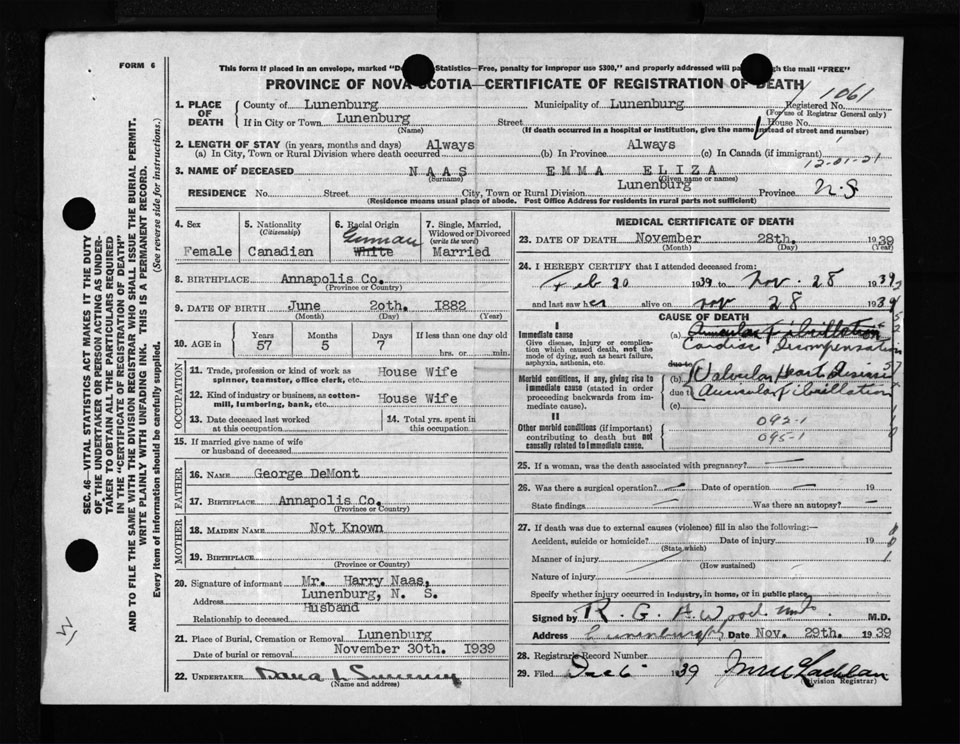 FORM 6
This form if placed in an envelope, marked "De Statistics—Free, penalty for improper use $300," and properly addressed will pa through the mail "FREE"
PROVINCE OF NOVA SCOTIA—CERTIFICATE OF REGISTRATION OF DEATH
1061
1. PLACE OF DEATH
County of Lunenburg Municipality of Lunenburg Registered No.
(For use of Registrar General only)
If in City or Town Lunenburg Street House No.
(Name) (If death occurred in a hospital or institution, give the name instead of street and number)
2. LENGTH OF STAY (in years, months and days) Always Always
(a) In City, Town or Rural Division where death occurred (b) In Province (c) In Canada (if immigrant)
12-01-21
3. NAME OF DECEASED NAAS EMMA ELIZA
(Surname) (Given name or names)
RESIDENCE No. Street City, Town or Rural Division Lunenburg Province N.S
(Residence means usual place of abode. Post Office Address for residents in rural parts not sufficient)
4. Sex 5. Nationality (Citizenship) 6. Racial Origin 7. Single, Married, Widowed or Divorced (write the word)
German
Female Canadian White Married
8. BIRTHPLACE Annapolis Co.
(Province or Country)
9. DATE OF BIRTH June 20th. 1882
(Month) (Day) (Year)
10. AGE in Years Months Days If less than one day old
57 5 7 hrs. or min.
OCCUPATION
11. Trade, profession or kind of work as spinner, teamster, office clerk, etc. House Wife
12. Kind of industry or business, as cotton-mill, lumbering, bank, etc. House Wife
13. Date deceased last worked at this occupation 14. Total yrs. spent in this occupation
15. If married give name of wife or husband of deceased
FATHER
16. NAME George DeMont
17. BIRTHPLACE Annapolis Co.
(Province or Country)
MOTHER
18. MAIDEN NAME Not Known
19. BIRTHPLACE
(Province or Country)
20. Signature of informant Mr. Harry Naas,
Address Lunenburg, N. S.
Relationship to deceased Husband
21. Place of Burial, Cremation or Removal Lunenburg
Date of burial or removal November 30th. 1939
22. UNDERTAKER Dana L Sweeney
(Name and address)
MEDICAL CERTIFICATE OF DEATH
23. DATE OF DEATH November 28th. 1939
(Month) (Day) (Year)
24. I HEREBY CERTIFY that I attended deceased from:
Feb 20 1939 to Nov. 28 1939
and last saw her alive on Nov 28 1939
CAUSE OF DEATH
I
Immediate cause
Give disease, injury or complication which caused death, not the mode of dying, such as heart failure, asphyxia, asthenia, etc.
(a) Auricular fibrillation
Cardiac Decompensation
due to
Morbid conditions, if any, giving rise to immediate cause (stated in order proceeding backwards from immediate cause).
(b) Valvular Heart Disease
due to Auricular fibrillation
(c)
II
Other morbid conditions (if important) contributing to death but not causally related to immediate cause.
092-1
095-1
25. If a woman, was the death associated with pregnancy? —
26. Was there a surgical operation? — Date of operation — 19
State findings — Was there an autopsy? —
27. If death was due to external causes (violence) fill in also the following:—
Accident, suicide or homicide? Date of injury 19
(State which)
Manner of injury
(How sustained)
Nature of injury
Specify whether injury occurred in industry, in home, or in public place
Signed by R. G. A. Wood M.D.
Address Lunenburg Date Nov. 29th. 1939
28. Registrar's Record Number
29. Filed Dec 6 1939
(Division Registrar)
SEC. 46—VITAL STATISTICS ACT MAKES IT THE DUTY
OF THE UNDERTAKER OR PERSON ACTING AS UNDER-
TAKER TO OBTAIN ALL THE PARTICULARS REQUIRED
IN THE "CERTIFICATE OF REGISTRATION OF DEATH"
AND TO FILE THE SAME WITH THE DIVISION REGISTRAR WHO SHALL ISSUE THE BURIAL PERMIT.
WRITE PLAINLY WITH UNFADING INK. THIS IS A PERMANENT RECORD.
Every item of information should be carefully supplied. (See reverse side for instructions.)